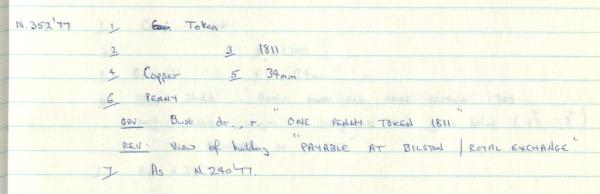 N.352'77 1 Coin Token
2 3 1811
4 Copper 5 34mm
6 PENNY
OBV: Bust dr., r. "ONE PENNY TOKEN 1811"
REV: View of building "PAYABLE AT BILSTON / ROYAL EXCHANGE"
7 As N.240'77.